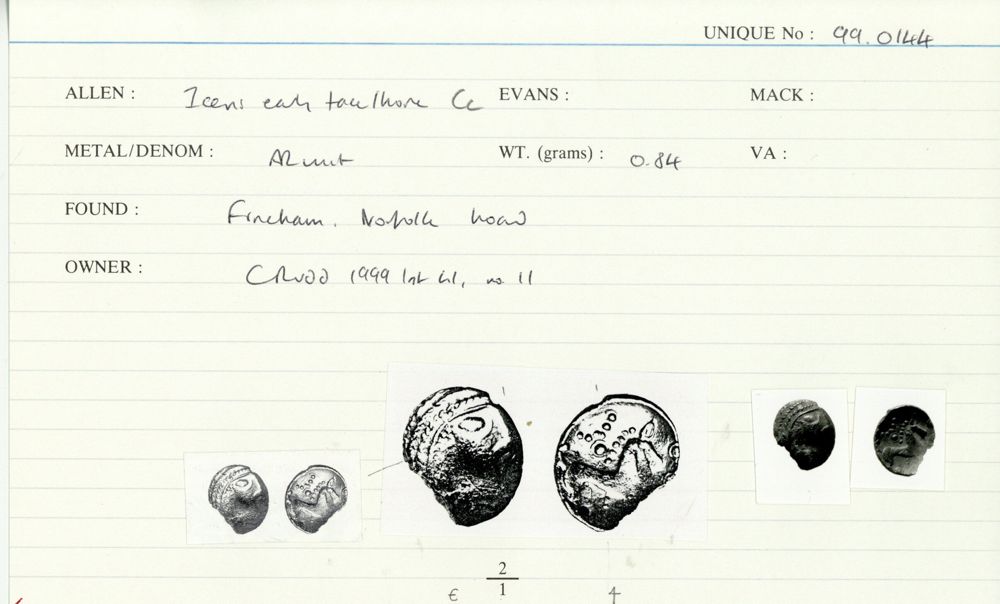 UNIQUE No : 99.0144
ALLEN : Iceni early face/horse Cc EVANS : MACK :
METAL/DENOM : AR unit WT. (grams) : 0.84 VA :
FOUND : Fincham, Norfolk hoard
OWNER : CRudd 1999 list 41, no. 11
2
1